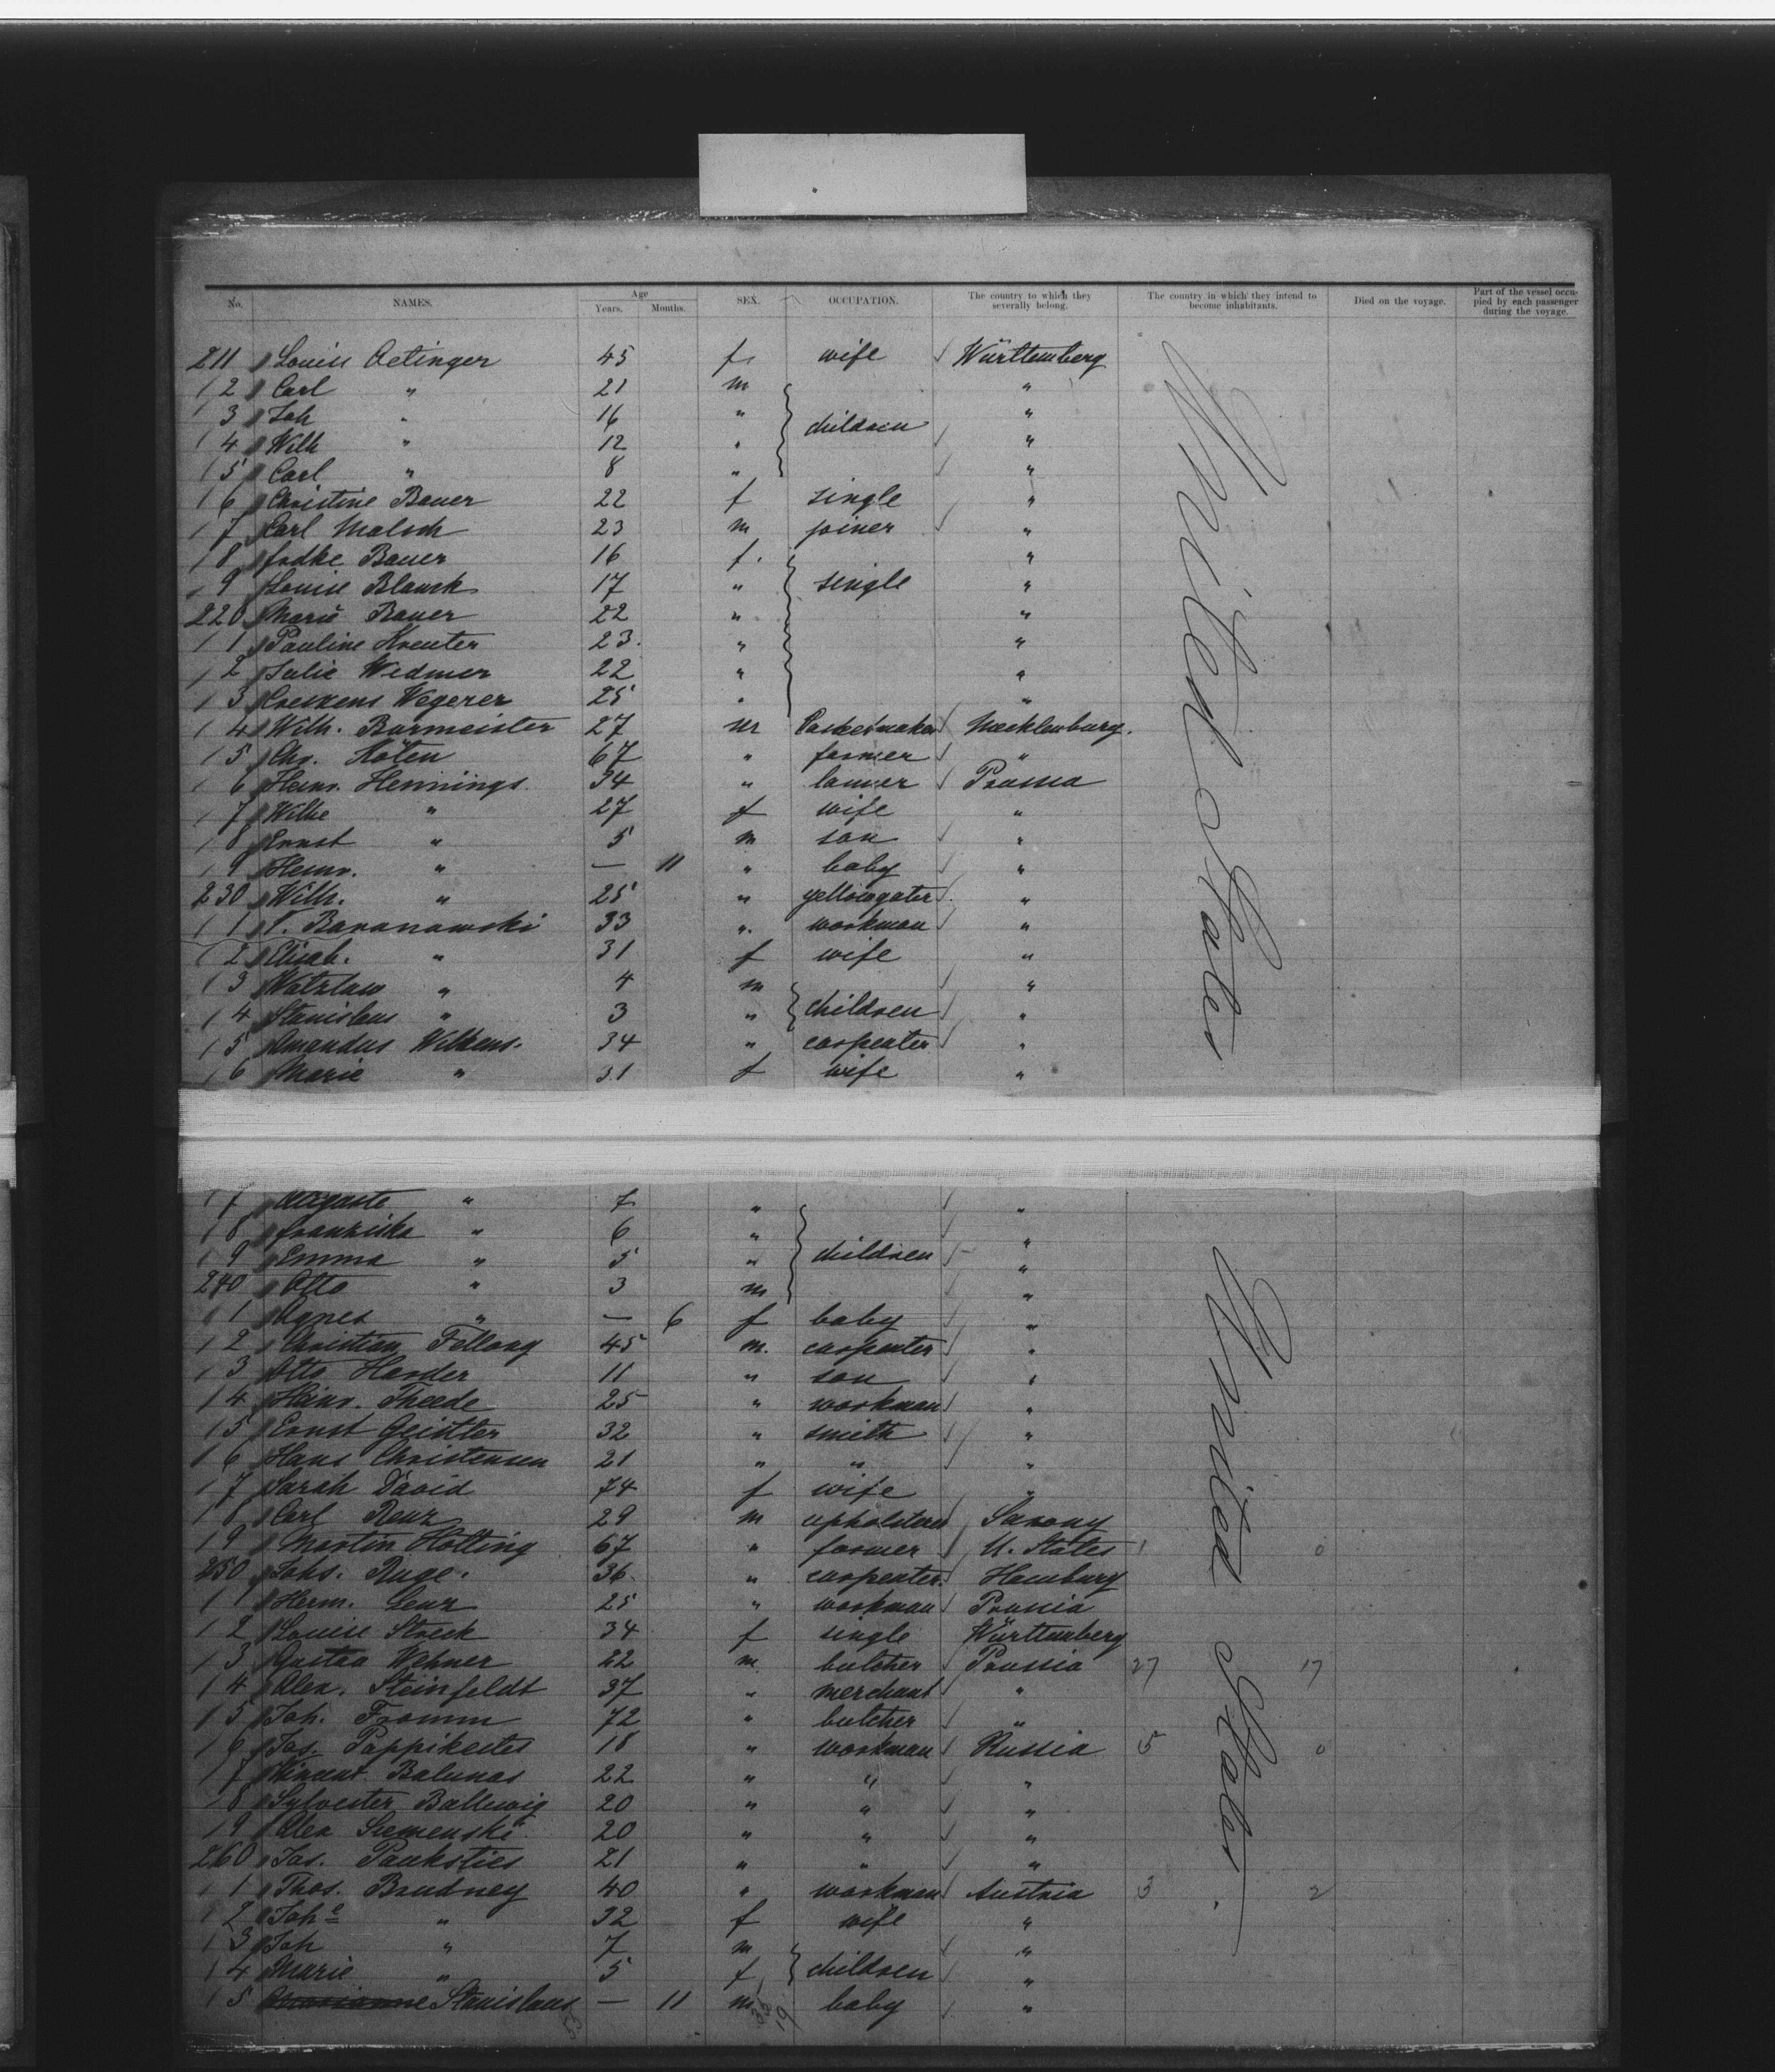 No. NAMES. Age Years. Months. SEX. OCCUPATION. The country to which they severally belong. The country in which they intend to become inhabitants. Died on the voyage. Part of the vessel occupied by each passenger during the voyage.
211 Louise Oetinger 45 f. wife Württemberg
2 Carl " 21 m "
3 Joh " 16 " children "
4 Wilh " 12 " "
5 Carl " 8 " "
6 Christine Bauer 22 f single "
7 Carl Malsch 23 m joiner "
8 Bauer 16 f. "
9 Louise Blanck 17 " single "
220 Marie Bauer 22 " "
1 Pauline Kreuter 23. " "
2 Julie Wedmer 22 " "
3 Creszens Wegerer 25 " "
4 Wilh. Burmeister 27 m Mecklenburg.
5 Chr. Höten 67 " farmer "
6 Heinr. Hennings 34 " Prussia
7 Wilhe " 27 f wife "
8 Ernst " 5 m son "
9 Heinr. " — 11 " baby "
230 Wilh. " 25 " "
1 V. Baranawski 33 ". workman "
2 Elisab. " 31 f wife "
3 Watzlaw " 4 m "
4 Stanislaus " 3 " children "
5 Amandus Wilkens. 34 " carpenter "
6 Marie " 31 f wife "
7 Auguste " 7 " "
8 Franziska " 6 " "
9 Emma " 5 " children "
240 Otto " 3 m "
1 Agnes " — 6 f baby "
2 Christian 45 m. carpenter "
3 Otto Harder 11 " son "
4 Heinr. Theede 25 " workman "
5 Ernst Geistler 32 " smith "
6 Hans Christensen 21 " " "
7 Sarah David 74 f wife "
8 Carl Renz 29 m upholsterer Saxony
9 Martin Hotting 67 " farmer U. States 1 0
250 Johs. Ruge. 36. " carpenter. Hamburg
1 Herm. Lenz 25 " workman Prussia
2 Louise Streck 34 f single Württemberg
3 Gustav Wehner 22 m butcher Prussia 27 17
4 Alex. Steinfeldt 37 " merchant "
5 Joh. Fromm 72 " butcher "
6 Jos. 18 " workman Russia 5 0
7 Vincent Balunas 22 " " "
8 Sylvester Ballewig 20 " " "
9 Alex 20 " " "
260 Jos. Pauksties 21 " " "
1 Thos. Brudney 40 " workman Austria 3 2
2 Johe " 32 f wife "
3 Joh " 7 m "
4 Marie " 5 f children "
5 Marianne Stanislaus — 11 m baby "
United States
United States.